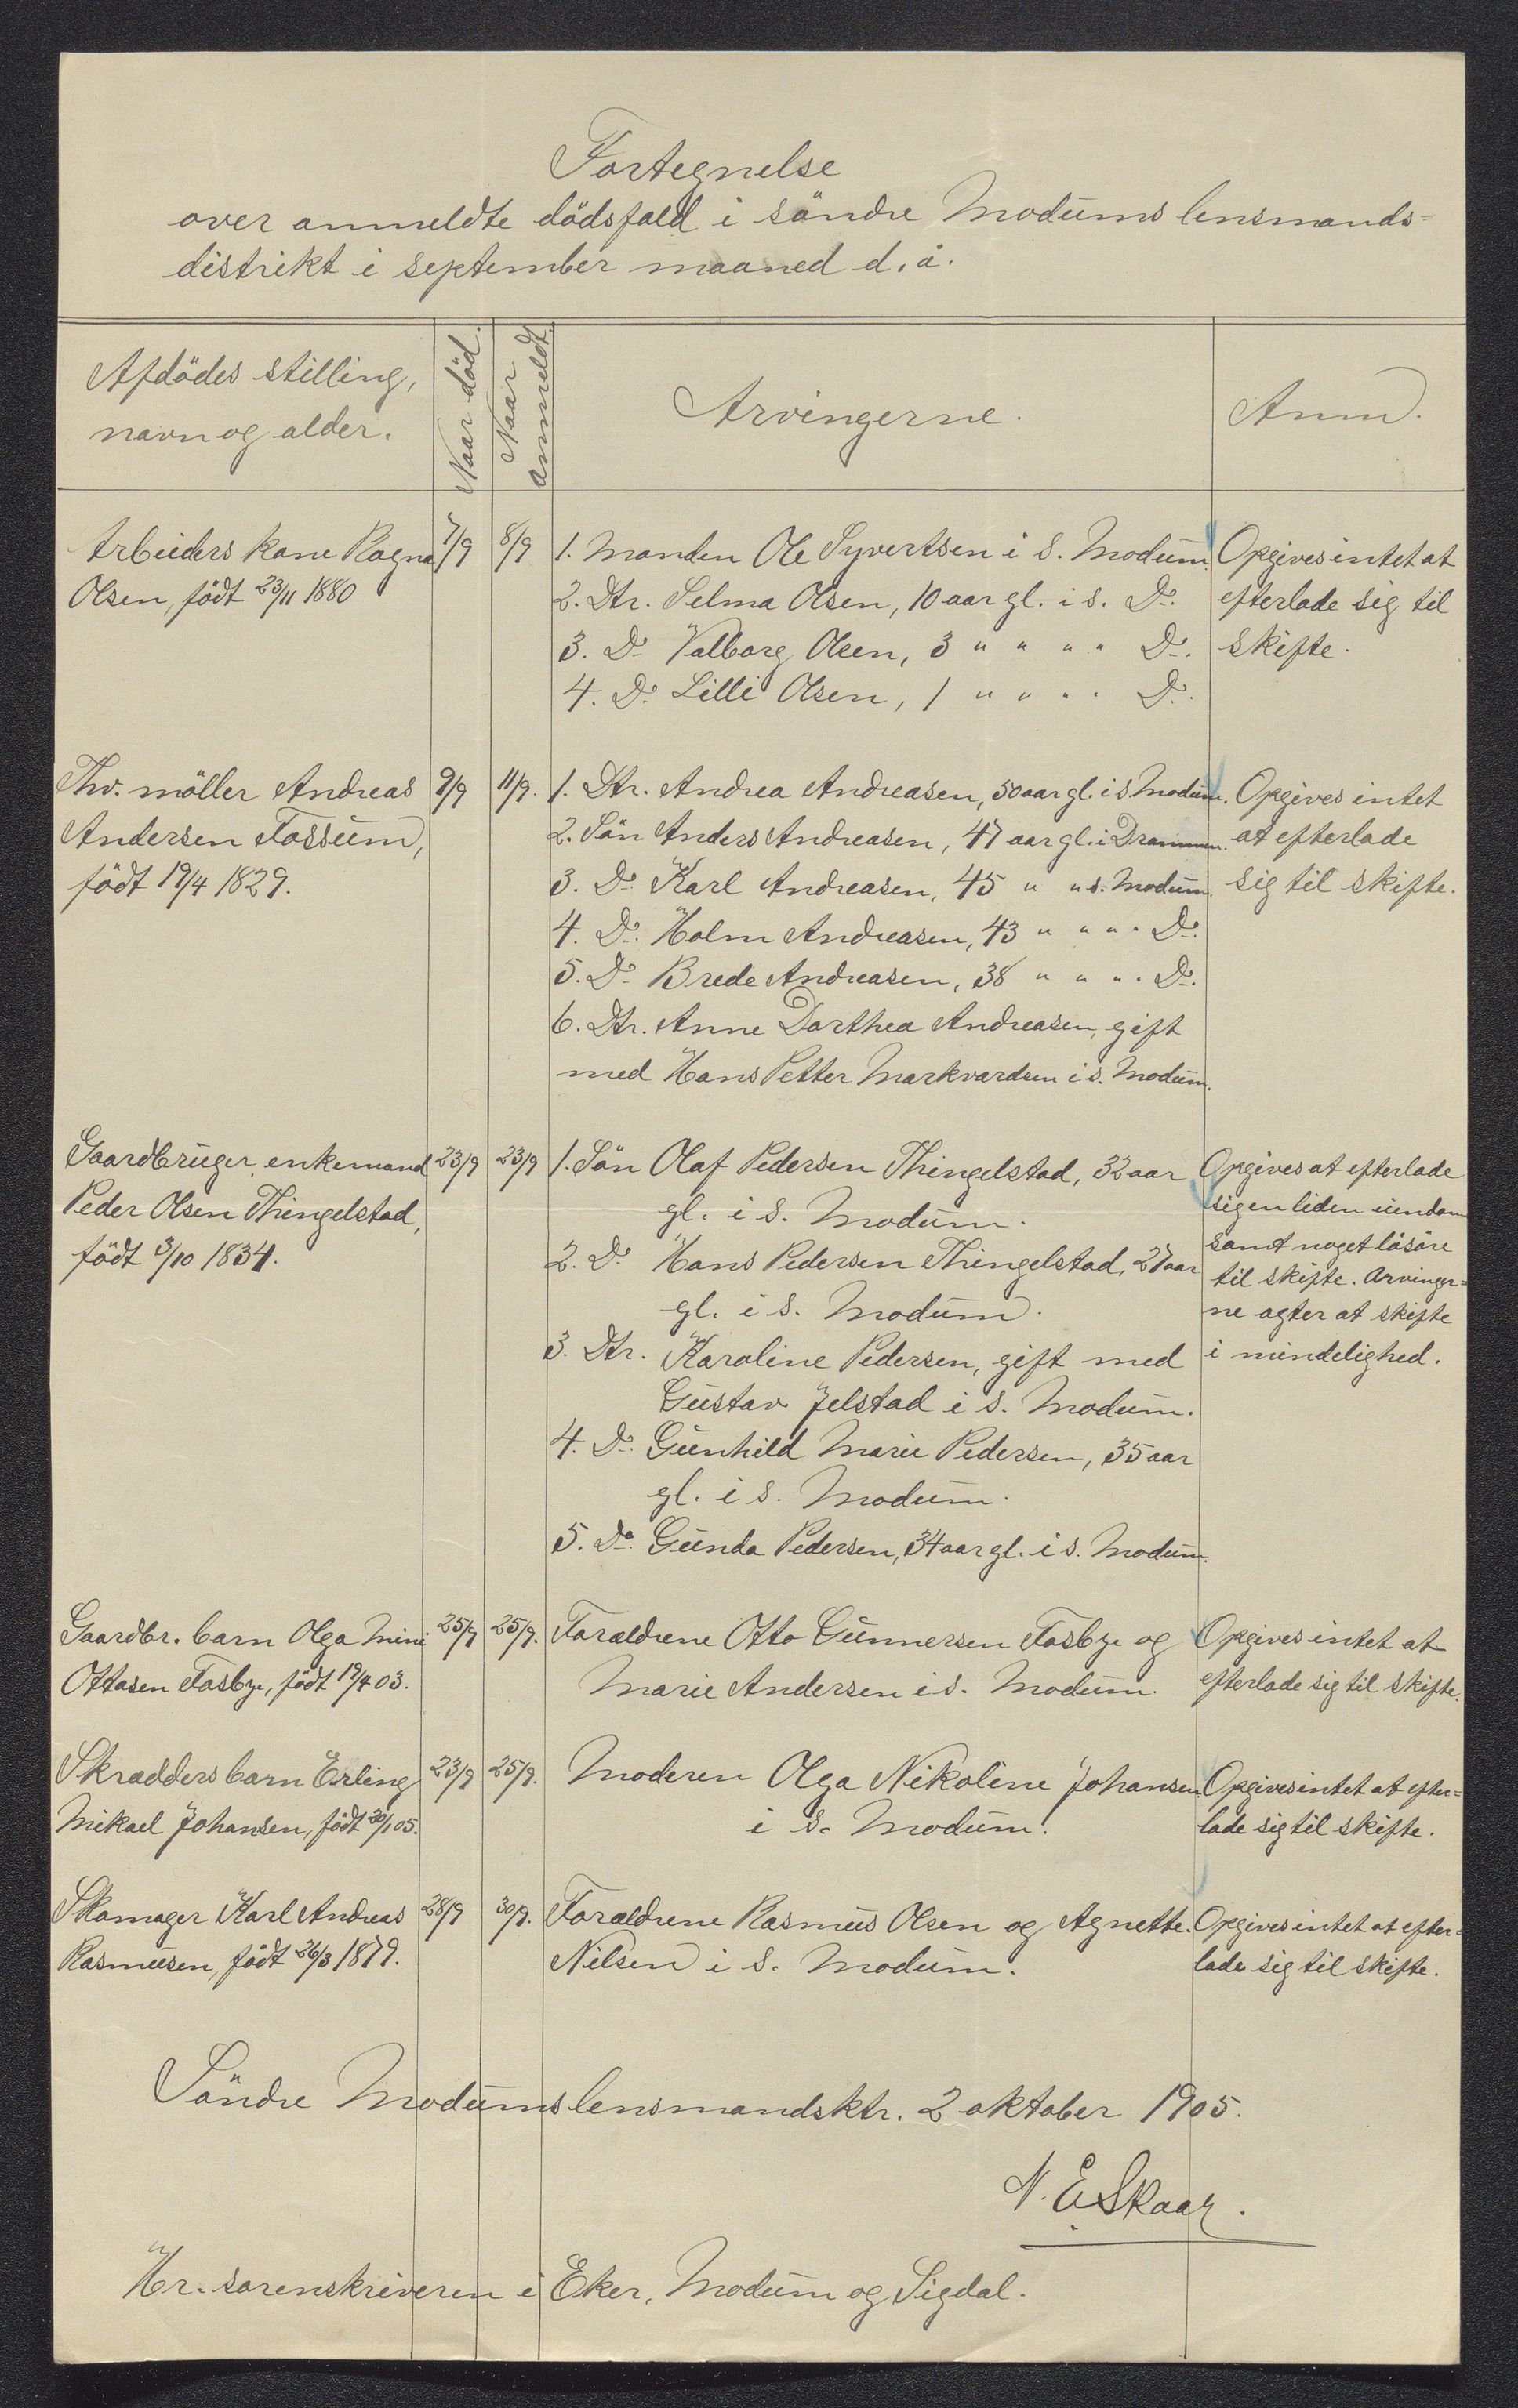 Fortegnelse
over anmeldte dödsfald i söndre Modums lensmands-
distrikt i september maaned d. å.
Afdödes stilling,
navn og alder.
Naar död.
Naar
anmeldt.
Arvingerne.
Anm.
Arbeiders kone Ragna
Olsen, födt 23/11 1880
7/9
8/9
1. Manden Ole Syvertsen i s. Modum.
2. Dtr. Selma Olsen, 10 aar gl. i s. Do.
3. Do. Valborg Olsen, 3 " " " " Do.
4. Do. Lilli Olsen, 1 " " " " Do.
Opgives intet at
efterlade sig til
skifte.
Fhv. möller Andreas
Andersen Fossum,
födt 19/4 1829.
9/9
11/9.
1. Dtr. Andrea Andreasen, 50 aar gl. i s Modum.
2. Sön Anders Andreasen, 47 aar gl. i Drammen.
3. Do. Karl Andreasen, 45 " " s. Modum.
4. Do. Holm Andreasen, 43 " " " " Do.
5. Do. Brede Andreasen, 38 " " " " Do.
6. Dtr. Anne Dorthea Andreasen, gift
med Hans Petter Markvardsen i s. Modum.
Opgives intet
at efterlade
sig til skifte.
Gaardbruger, enkemand
Peder Olsen Thingelstad,
födt 3/10 1834.
23/9
23/9
1. Sön Olaf Pedersen Thingelstad, 32 aar
gl. i s. Modum.
2. Do. Hans Pedersen Thingelstad, 27 aar
gl. i s. Modum.
3. Dtr. Karoline Pedersen, gift med
Gustav Jelstad i s. Modum.
4. Do. Gunhild Marie Pedersen, 35 aar
gl. i s. Modum.
5. Do. Gunda Pedersen, 34 aar gl. i s. Modum.
Opgives at efterlade
sig en liden eiendom
samt noget lösöre
til skifte. Arvinger-
ne agter at skifte
i mindelighed.
Gaardbr. barn Olga Mini
Ottosen Fosbye, födt 19/4 03.
25/9
25/9.
Forældrene Otto Gunnersen Fosbye og
Marie Andersen i s. Modum.
Opgives intet at
efterlade sig til skifte.
Skrædders barn Erling
Mikael Johansen, födt 30/1 05.
23/9
25/9.
Moderen Olga Nikoline Johansen
i s. Modum.
Opgives intet at efter-
lade sig til skifte.
Skomager Karl Andreas
Rasmusen, födt 26/3 1879.
28/9
30/9.
Forældrene Rasmus Olsen og Agnette
Nilsen i s. Modum.
Opgives intet at efter-
lade sig til skifte.
Söndre Modums lensmandsktr. 2 oktober 1905.
N. E. Skaar.
Hr. sorenskriveren i Eker, Modum og Sigdal.